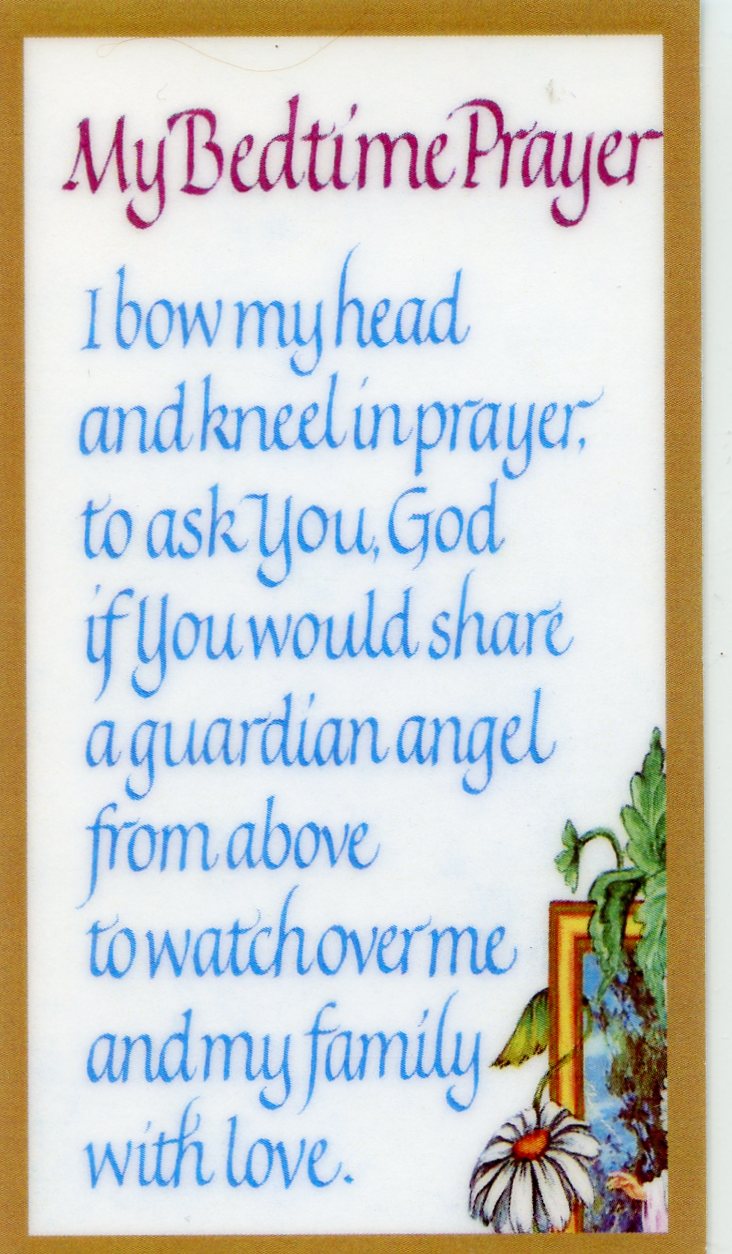 My Bedtime Prayer
I bow my head
and kneel in prayer,
to ask You, God
if You would share
a guardian angel
from above
to watch over me
and my family
with love.